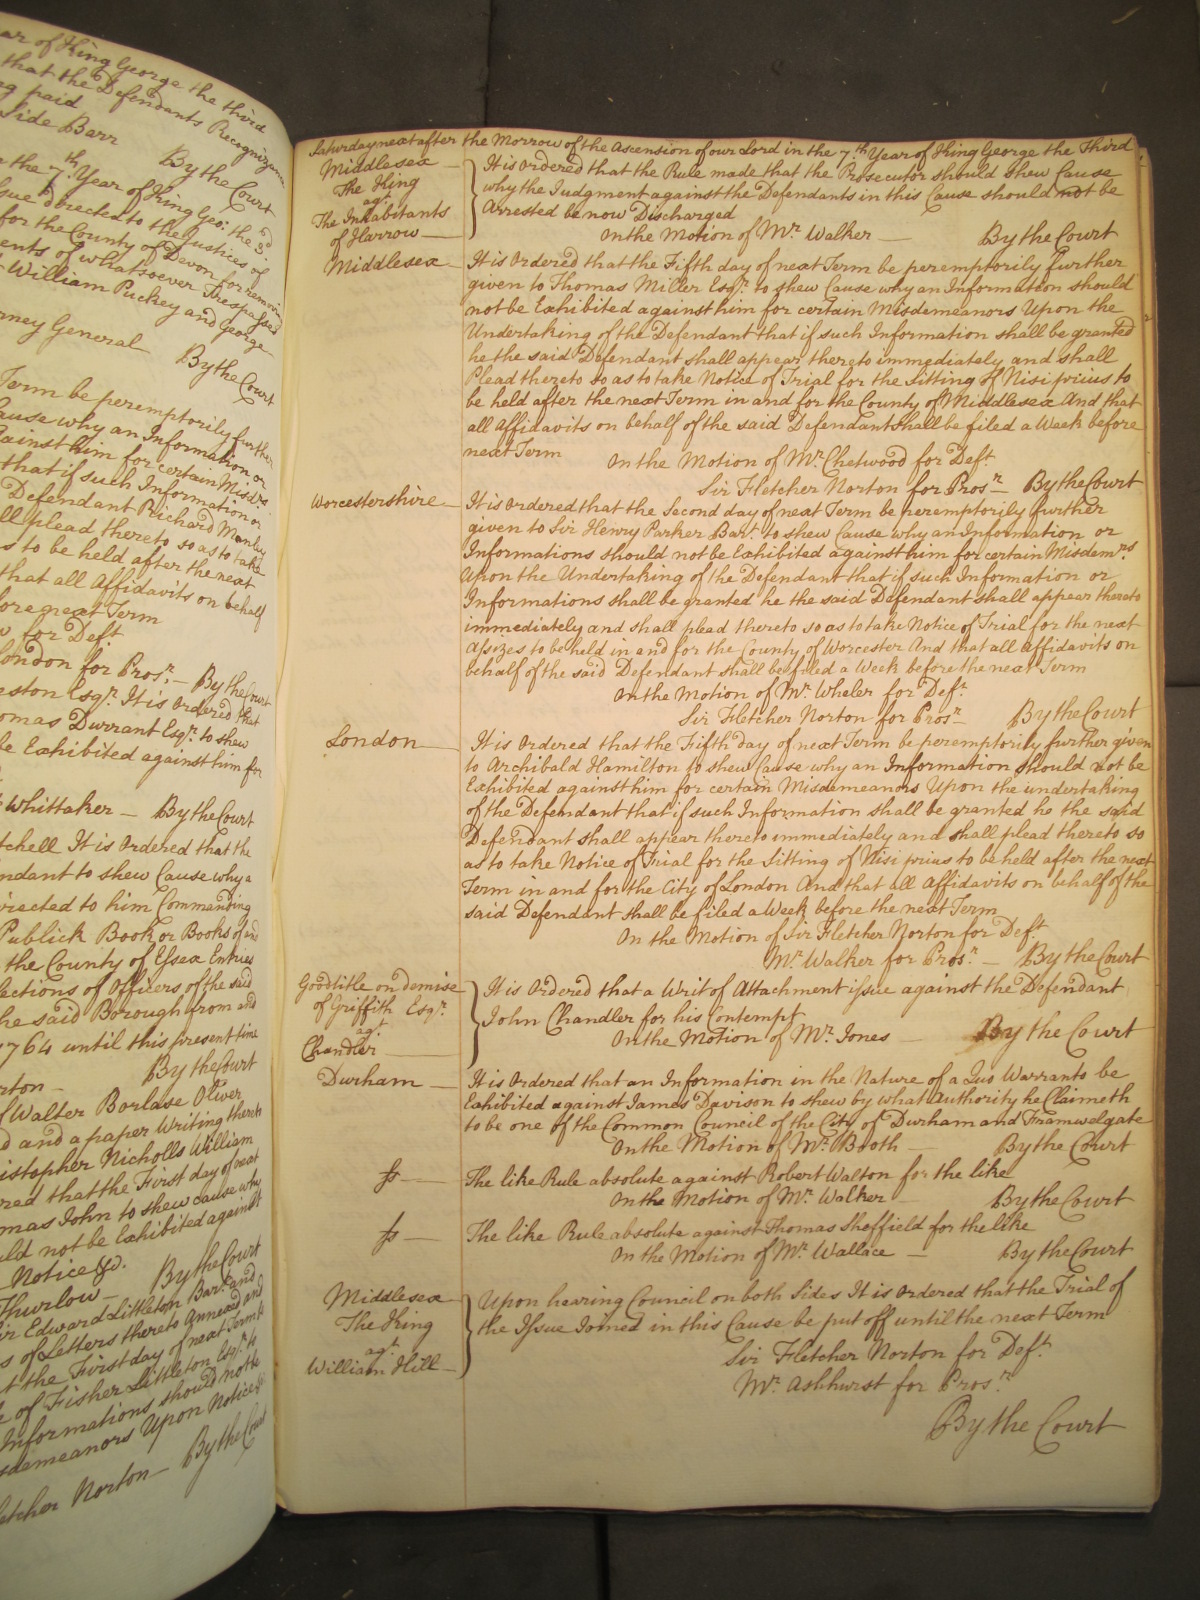 ar of King George the third
that the Defendants Recognizance
ng paid
Side Barr By the Court
the 7th Year of King Geo. the 3d
sue directed to the Justices of
for the County of Devon for removing
ents of whatsoever Trespasses
William Puckey and George
rney General By the Court
Term be peremptorily further
ause why an Information or
gainst him for certain Misdrs
that if such Information or
Defendant Richard Manley
ll plead thereto so as to take
s to be held after the next
that all Affidavits on behalf
fore next Term
for Deft
London for Prosr. By the Court
eston Esqr. It is Ordered that
omas Durrant Esqr. to shew
be Exhibited against him for
Whittaker By the Court
tchell It is Ordered that the
ndant to shew Cause why a
irected to him Commanding
Publick Book or Books of and
the County of Essex Entries
lections of Officers of the said
he said Borough from and
1764 until this present time
rton By the Court
f Walter Borlase Oliver
d and a paper Writing thereto
istopher Nicholls William
red that the First day of next
mas John to shew cause why
uld not be Exhibited against
Notice &c. By the Court
Thurlow
ir Edward Littleton Bart. and
s of Letters thereto Annexed and
t the First day of next Term be
of Fisher Littleton Esqr. to
Informations should not be
sdemeanors Upon Notice &c
etcher Norton By the Court
Saturday next after the Morrow of the Ascension of our Lord in the 7th Year of King George the Third
Middlesex
The King
agt
The Inhabitants
of Harrow
It is Ordered that the Rule made that the Prosecutor should shew Cause
why the Judgment against the Defendants in this Cause should not be
Arrested be now Discharged
On the Motion of Mr. Walker By the Court
Middlesex It is Ordered that the Fifth day of next Term be peremptorily further
given to Thomas Miller Esqr. to shew Cause why an Information should
not be Exhibited against him for certain Misdemeanors Upon the
Undertaking of the Defendant that if such Information shall be granted
he the said Defendant shall appear thereto immediately and shall
Plead thereto so as to take Notice of Trial for the Sitting of Nisi prius to
be held after the next Term in and for the County of Middlesex And that
all Affidavits on behalf of the said Defendant shall be filed a Week before
next Term On the Motion of Mr. Chetwood for Deft.
Sir Fletcher Norton for Prosr. By the Court
Worcestershire It is Ordered that the Second day of next Term be peremptorily further
given to Sir Henry Parker Bart. to shew Cause why an Information or
Informations should not be Exhibited against him for certain Misdemrs
Upon the Undertaking of the Defendant that if such Information or
Informations shall be granted he the said Defendant shall appear thereto
immediately and shall plead thereto so as to take Notice of Trial for the next
Assizes to be held in and for the County of Worcester And that all Affidavits on
behalf of the said Defendant shall be filed a Week before the next Term
On the Motion of Mr. Wheler for Deft.
Sir Fletcher Norton for Prosr. By the Court
London It is Ordered that the Fifth day of next Term be peremptorily further given
to Archibald Hamilton to shew Cause why an Information should not be
Exhibited against him for certain Misdemeanors Upon the undertaking
of the Defendant that if such Information shall be granted he the said
Defendant shall appear thereto immediately and shall plead thereto so
as to take Notice of Trial for the Sitting of Nisi prius to be held after the next
Term in and for the City of London And that all Affidavits on behalf of the
said Defendant shall be filed a Week before the next Term
On the Motion of Sir Fletcher Norton for Deft.
Mr. Walker for Prosr. By the Court
Goodtitle on demise
of Griffith Esqr.
agt.
Chandler
It is Ordered that a Writ of Attachment issue against the Defendant
John Chandler for his Contempt
On the Motion of Mr. Jones By the Court
Durham It is Ordered that an Information in the Nature of a Quo Warranto be
Exhibited against James Davison to shew by what Authority he Claimeth
to be one of the Common Council of the City of Durham and Framwelgate
On the Motion of Mr. Booth By the Court
The like Rule absolute against Robert Walton for the like
On the Motion of Mr. Walker By the Court
The like Rule absolute against Thomas Sheffield for the like
On the Motion of Mr. Wallace By the Court
Middlesex
The King
agt.
William Hill
Upon hearing Council on both Sides It is Ordered that the Trial of
the Issue Joined in this Cause be put off until the next Term
Sir Fletcher Norton for Deft.
Mr. Ashhurst for Prosr.
By the Court